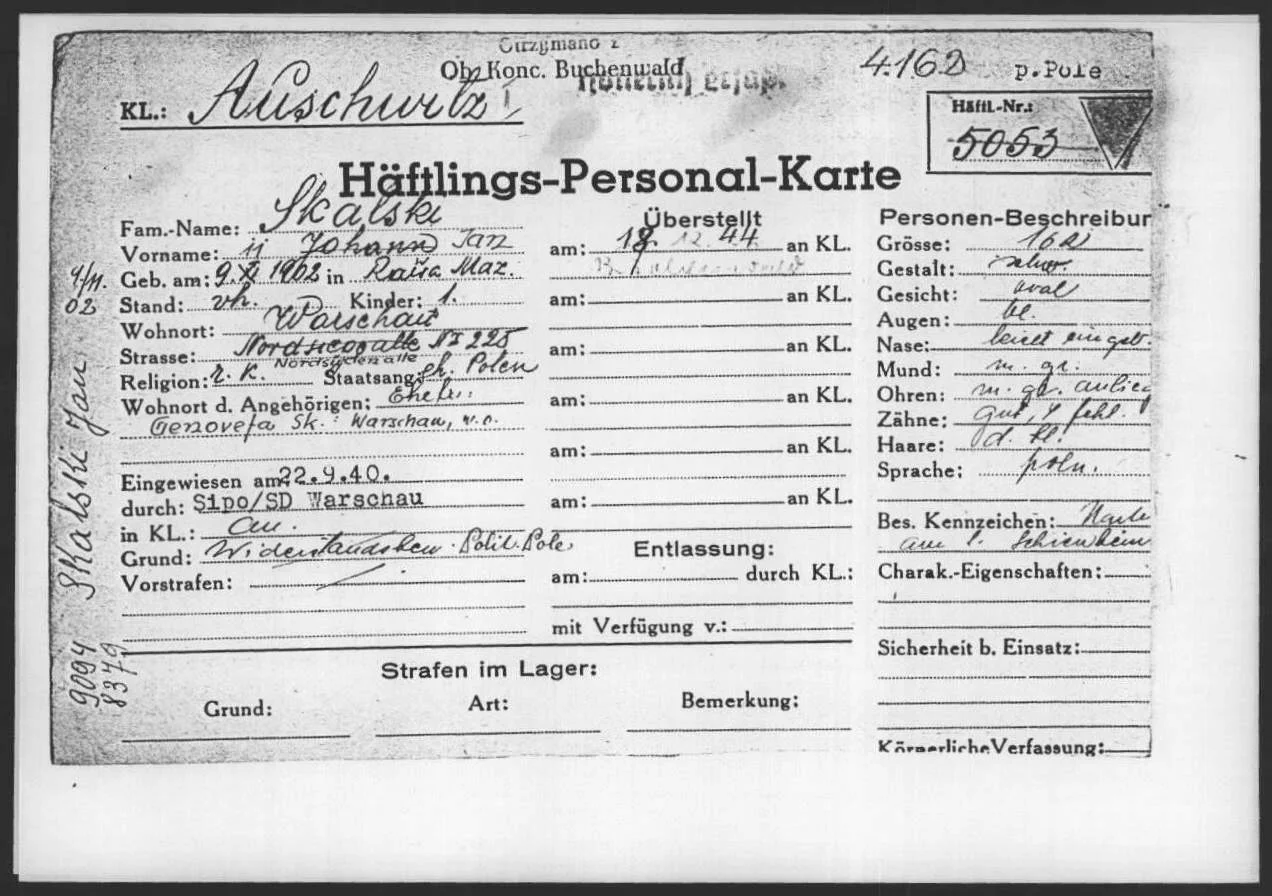 Otrzymano z
Ob. Konc. Buchenwald
4.162 p.Pole
KL.: Auschwitz I
Häftl.-Nr.:
5053
Häftlings-Personal-Karte
Fam.-Name: Skalski
Vorname: Johann Jan
Geb. am: 9.XI 1902 in Maz.
4/11.
02
Stand: vh. Kinder: 1.
Wohnort: Warschau
Strasse: 225
Nordsüdenalle
Religion: r. K. Staatsang: eh. Polen
Wohnort d. Angehörigen: Ehefr.:
Genovefa Sk.: Warschau, w.o.
Eingewiesen am: 22.9.40.
durch: Sipo/SD Warschau
in KL.: Au.
Grund: Widerstandsbew. Polit. Pole
Vorstrafen:
Überstellt
am: 18.12.44 an KL.
Buchenwald
am: an KL.
am: an KL.
am: an KL.
am: an KL.
am: an KL.
Entlassung:
am: durch KL.:
mit Verfügung v.:
Personen-Beschreibur
Grösse: 162
Gestalt: schw.
Gesicht: oval
Augen: bl.
Nase: leicht eingeb.
Mund: m. gr.
Ohren: m. gr. anlieg
Zähne: gut, 4 fehl.
Haare: d. bl.
Sprache: poln.
Bes. Kennzeichen: Narbe
am l. Schienbein
Charak.-Eigenschaften:
Sicherheit b. Einsatz:
Körperliche Verfassung:
Strafen im Lager:
Grund: Art: Bemerkung:
Skalski Jan
9094
8379